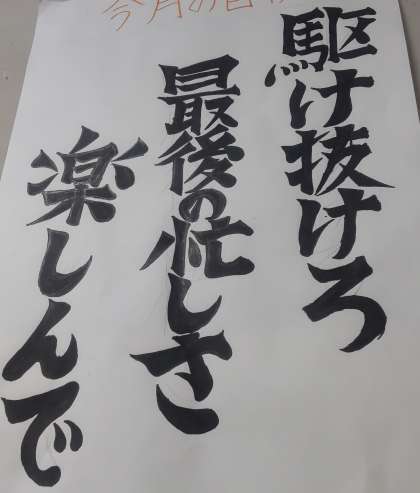 今月の目標
駆け抜けろ
最後の忙しさ
楽しんで